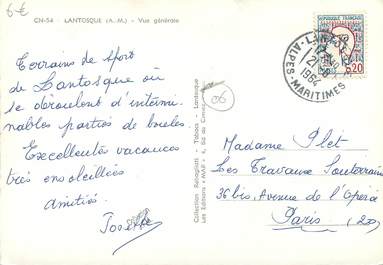 6€
CN-54 - LANTOSQUE (A.-M.) - Vue générale
Terrains de sport
de Lantosque où
se déroulent d'intermi-
nables parties de boules.
Excellentes vacances
très ensoleillées
amitiés
Josette
06
Collection Rehagliati - Tabacs - Lantosque
Les Editions "MAR"
LANTOSQUE
21
1964
ALPES-MARITIMES
0,20
Madame Plet
Les Travaux Souterrains
36bis, Avenue de l'Opéra
Paris (2e)